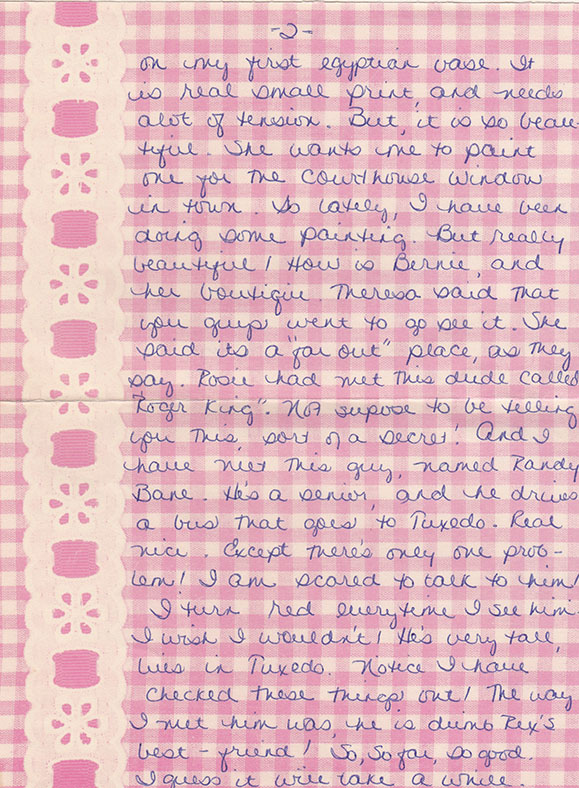 -2-
on my first egyptian vase. It
is real small print, and needs
alot of tension. But, it is so beau-
tiful. She wants me to paint
one for the courthouse window
in town. So lately, I have been
doing some painting. But really
beautiful! How is Bernie, and
her boutique. Theresa said that
you guys went to go see it. She
said its a "far out" place, as they
say. Rosie had met this dude called
"Roger King". Not supose to be telling
you this, sort of a secret! And I
have met this guy, named Randy
Bane. He's a senior, and he drives
a bus that goes to Tuxedo. Real
nice. Except there's only one prob-
lem! I am scared to talk to him!
I turn red everytime I see him.
I wish I wouldn't! He's very tall,
lives in Tuxedo. Notice I have
checked these things out! The way
I met him was, he is dumb Rex's
best-friend! So, So far, so good.
I guess it will take a while.